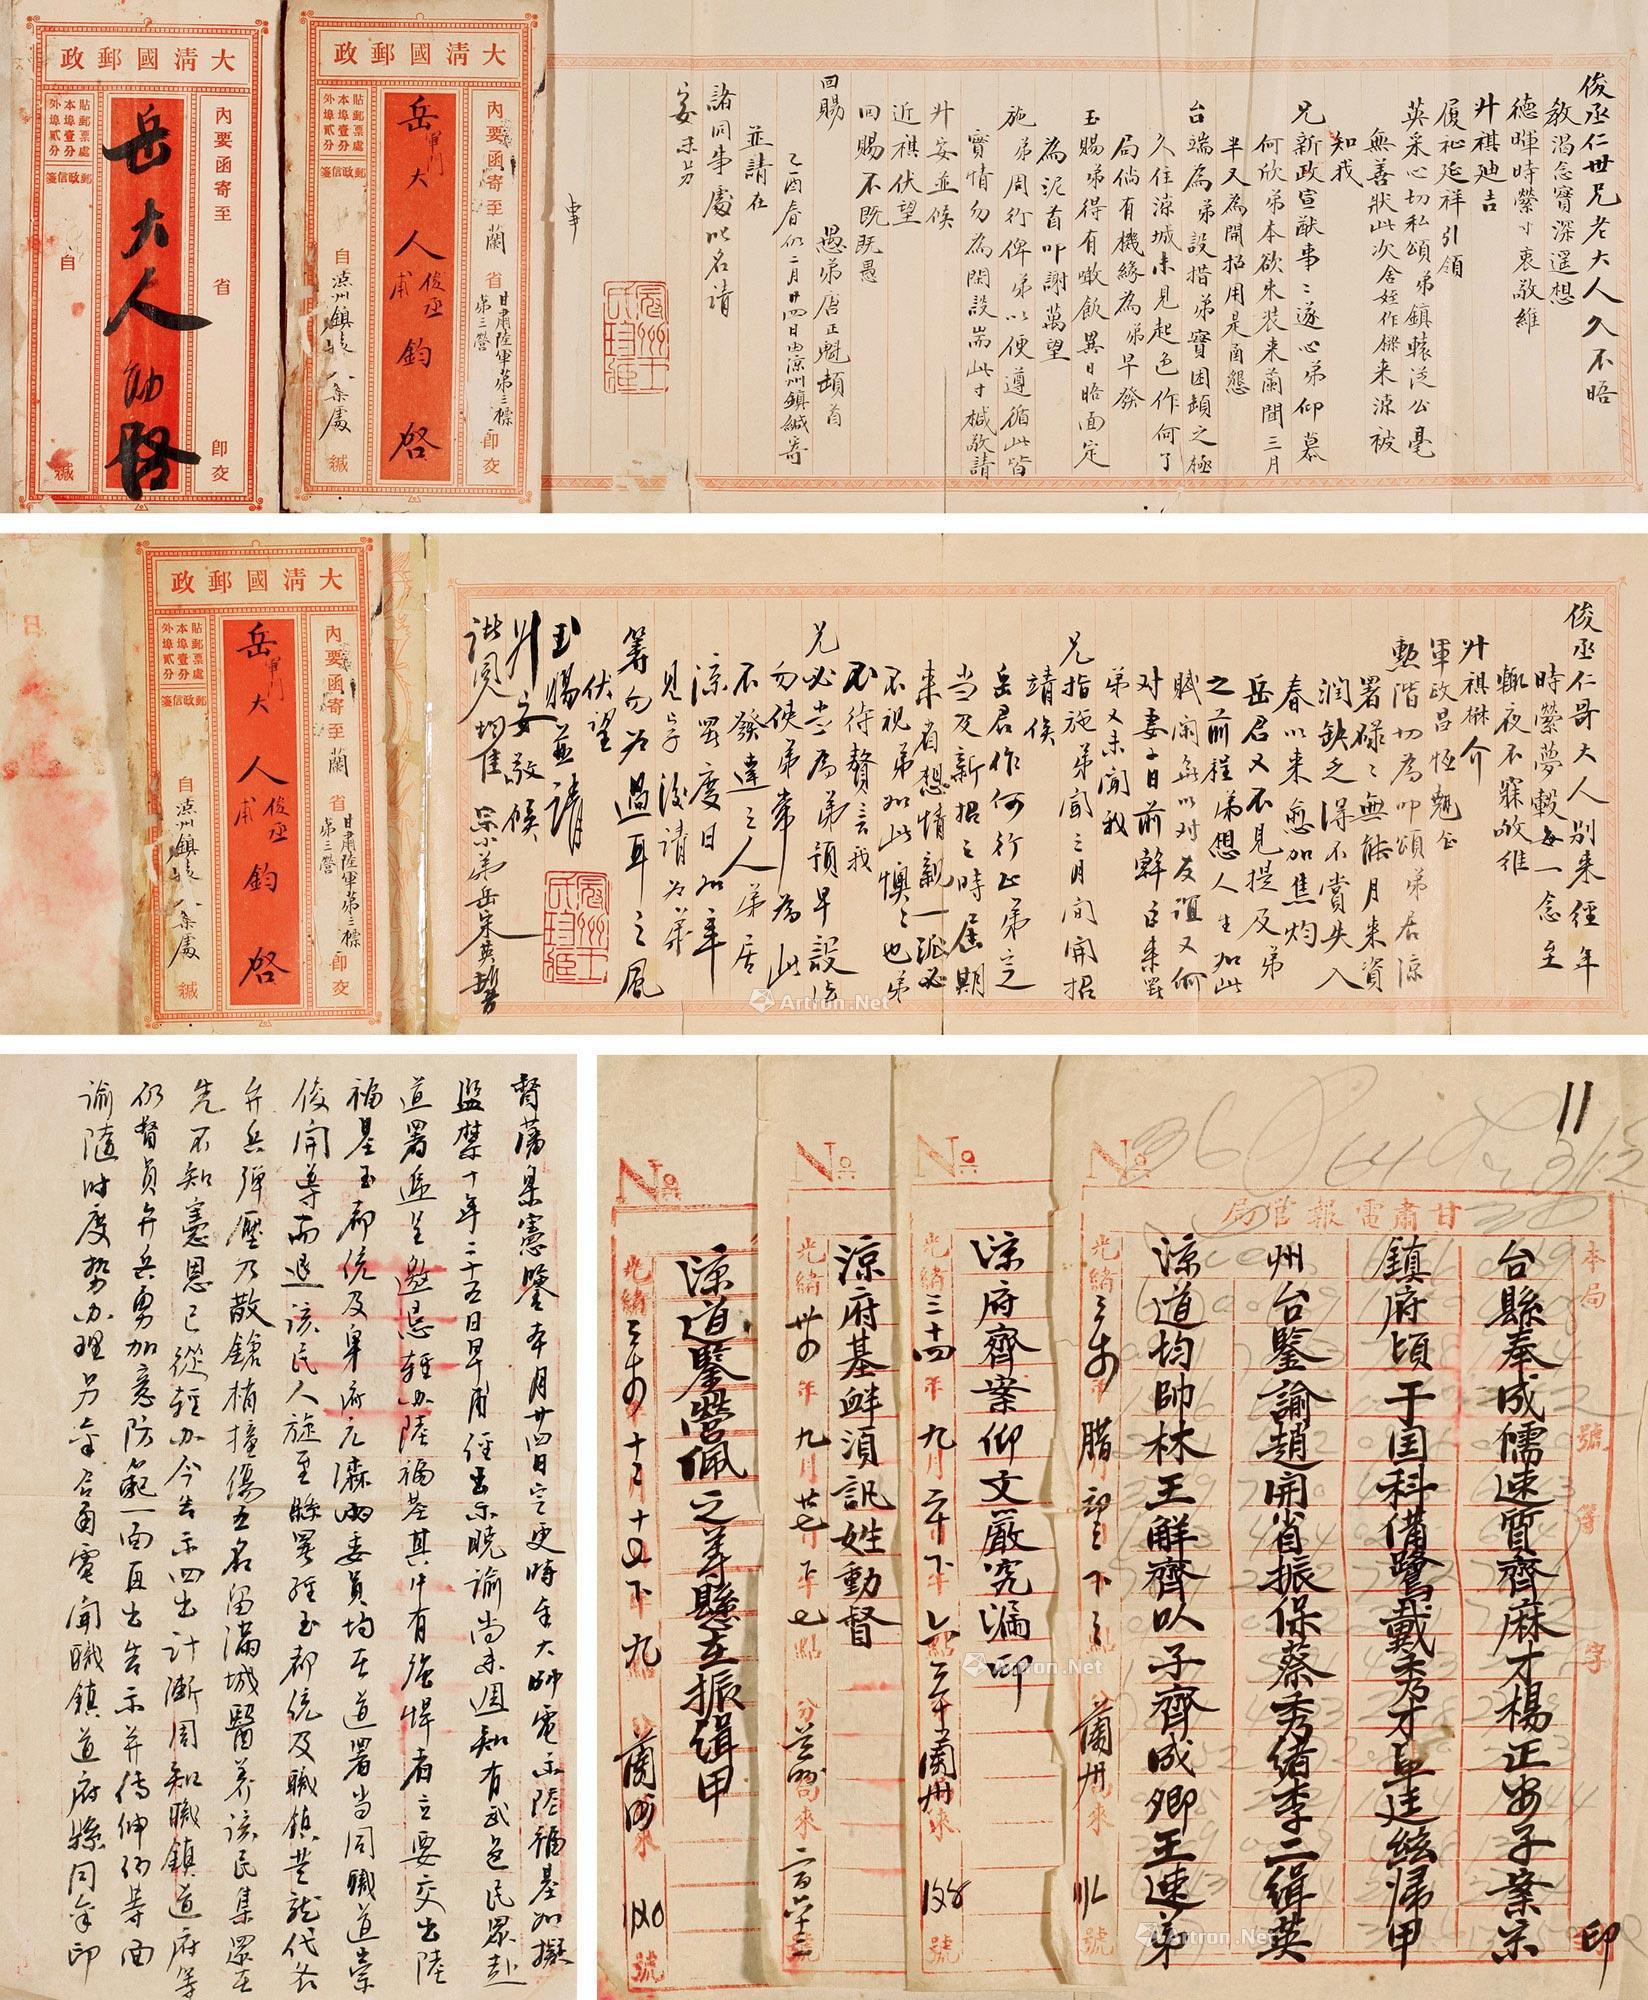 大清國郵政
內要函寄至
省
即交
貼郵票處
本埠壹分
外埠貳分
郵政信箋
岳大人勛啓
自
緘
大清國郵政
內要函寄至蘭省
甘肅陸軍第三標
第三營
即交
貼郵票處
本埠壹分
外埠貳分
郵政信箋
岳軍門大人俊丞甫鈞啓
自涼州鎮轅
緘
俊丞仁世兄老大人久不晤
教渴念實深遥想
德暉時縈寸衷敬維
升祺廸吉
履祉延祥引領
英采心切私頌弟鎮轅泛公毫
無善狀此次舍姪作傑来涼被
知我
兄新政宣猷事々遂心弟仰慕
何欣弟本欲束装来蘭聞三月
半又為開招用是函懇
台端為弟設措弟實困顛之極
久住涼城未見起色作何了
局倘有機緣為弟早發
玉賜弟得有噉飲異日晤面定
為泥首叩謝萬望
施弟周行俾弟以便遵循此皆
實情勿為閑談耑此寸楲敬請
升安並候
近祺伏望
回賜不既既愚
愚弟唐正魁頓首
乙酉春仍二月廿四日由涼州鎮緘寄
回賜
並請在
諸同事處以名請
安未另
大清國郵政
內要函寄至蘭省
甘肅陸軍第三標
第三營
即交
貼郵票處
本埠壹分
外埠貳分
郵政信箋
岳軍門大人俊丞甫鈞啓
自涼州鎮轅
緘
俊丞仁哥大人別来經年
時縈夢轂每一念至
輒夜不寐敬維
升祺楙介
軍政昌恒
勲階切為叩頌弟居涼
署碌々無能月来資
潤缺乏得不賞失入
春以来愈加焦灼
岳君又不見提及弟
之前程弟想人生如此
賦閑無以对友誼又何
对妻子日前幹臣来
弟又未聞我
兄指施弟聞三月間開招
靖侯
岳君作何行止弟定
当及新招之時屆期
来省想情親一派必
不視弟如此懊々也弟
不待贅言我
兄必士為弟預早設法
勿使弟常為此
不發達之人弟居
涼署度日如年
見字後請為弟
籌勿為過耳之風
伏望
玉賜並請
升安敬候
諧閤均隹 宗弟岳宋英
督藩臬憲鑒本月廿四日定更時奉大帥電示陸福基加擬
監禁十年二十五日早甫經出示曉諭尚未週知有武邑民眾赴
道署遞呈邀恩輕办陸福基其中有强悍者立要交出陸
福基玉都統及卑府元濤两委員均在道署当同職道崇
俊開導而退該民人旋至縣署經玉都統及職鎮
弁兵彈壓乃散鎗梢撞傷五名留滿城醫养該民集眾在
先不知憲恩已從輕办今告示四出計漸周知職鎮道府等
仍督員弁兵勇加意防範一面再出告示并傳伸仍籌面
諭隨时度势办理另筆合肅電聞職鎮道府縣同筆印
No
甘肅電報官局
本局 號 等 字
台縣奉成儒速質齊麻才楊正安子案宗
鎮府頃于国科備鷺戴秀才阜廷絃歸甲
州台鑒諭趙開省振保蔡秀緒李二緝英
涼道均帥林王解齊以子齊成卿王速弟
印
光緒三十四年腊月初三下三點 分蘭州来 號
No
涼府齊案仰文嚴究漏印
光緒三十四年九月二十下年七點 蘭州来 號
No
涼府基衅須訊姓動督
光緒卅四年九月廿七下年七點 分蘭州局来二百六十三號
No
涼道鑒營佩之美懸在振缉甲
光緒三十四年十二月十五下九點 蘭州来 號
11
Artron.Net
Artron.Net
Artron.Net
Artron.Net